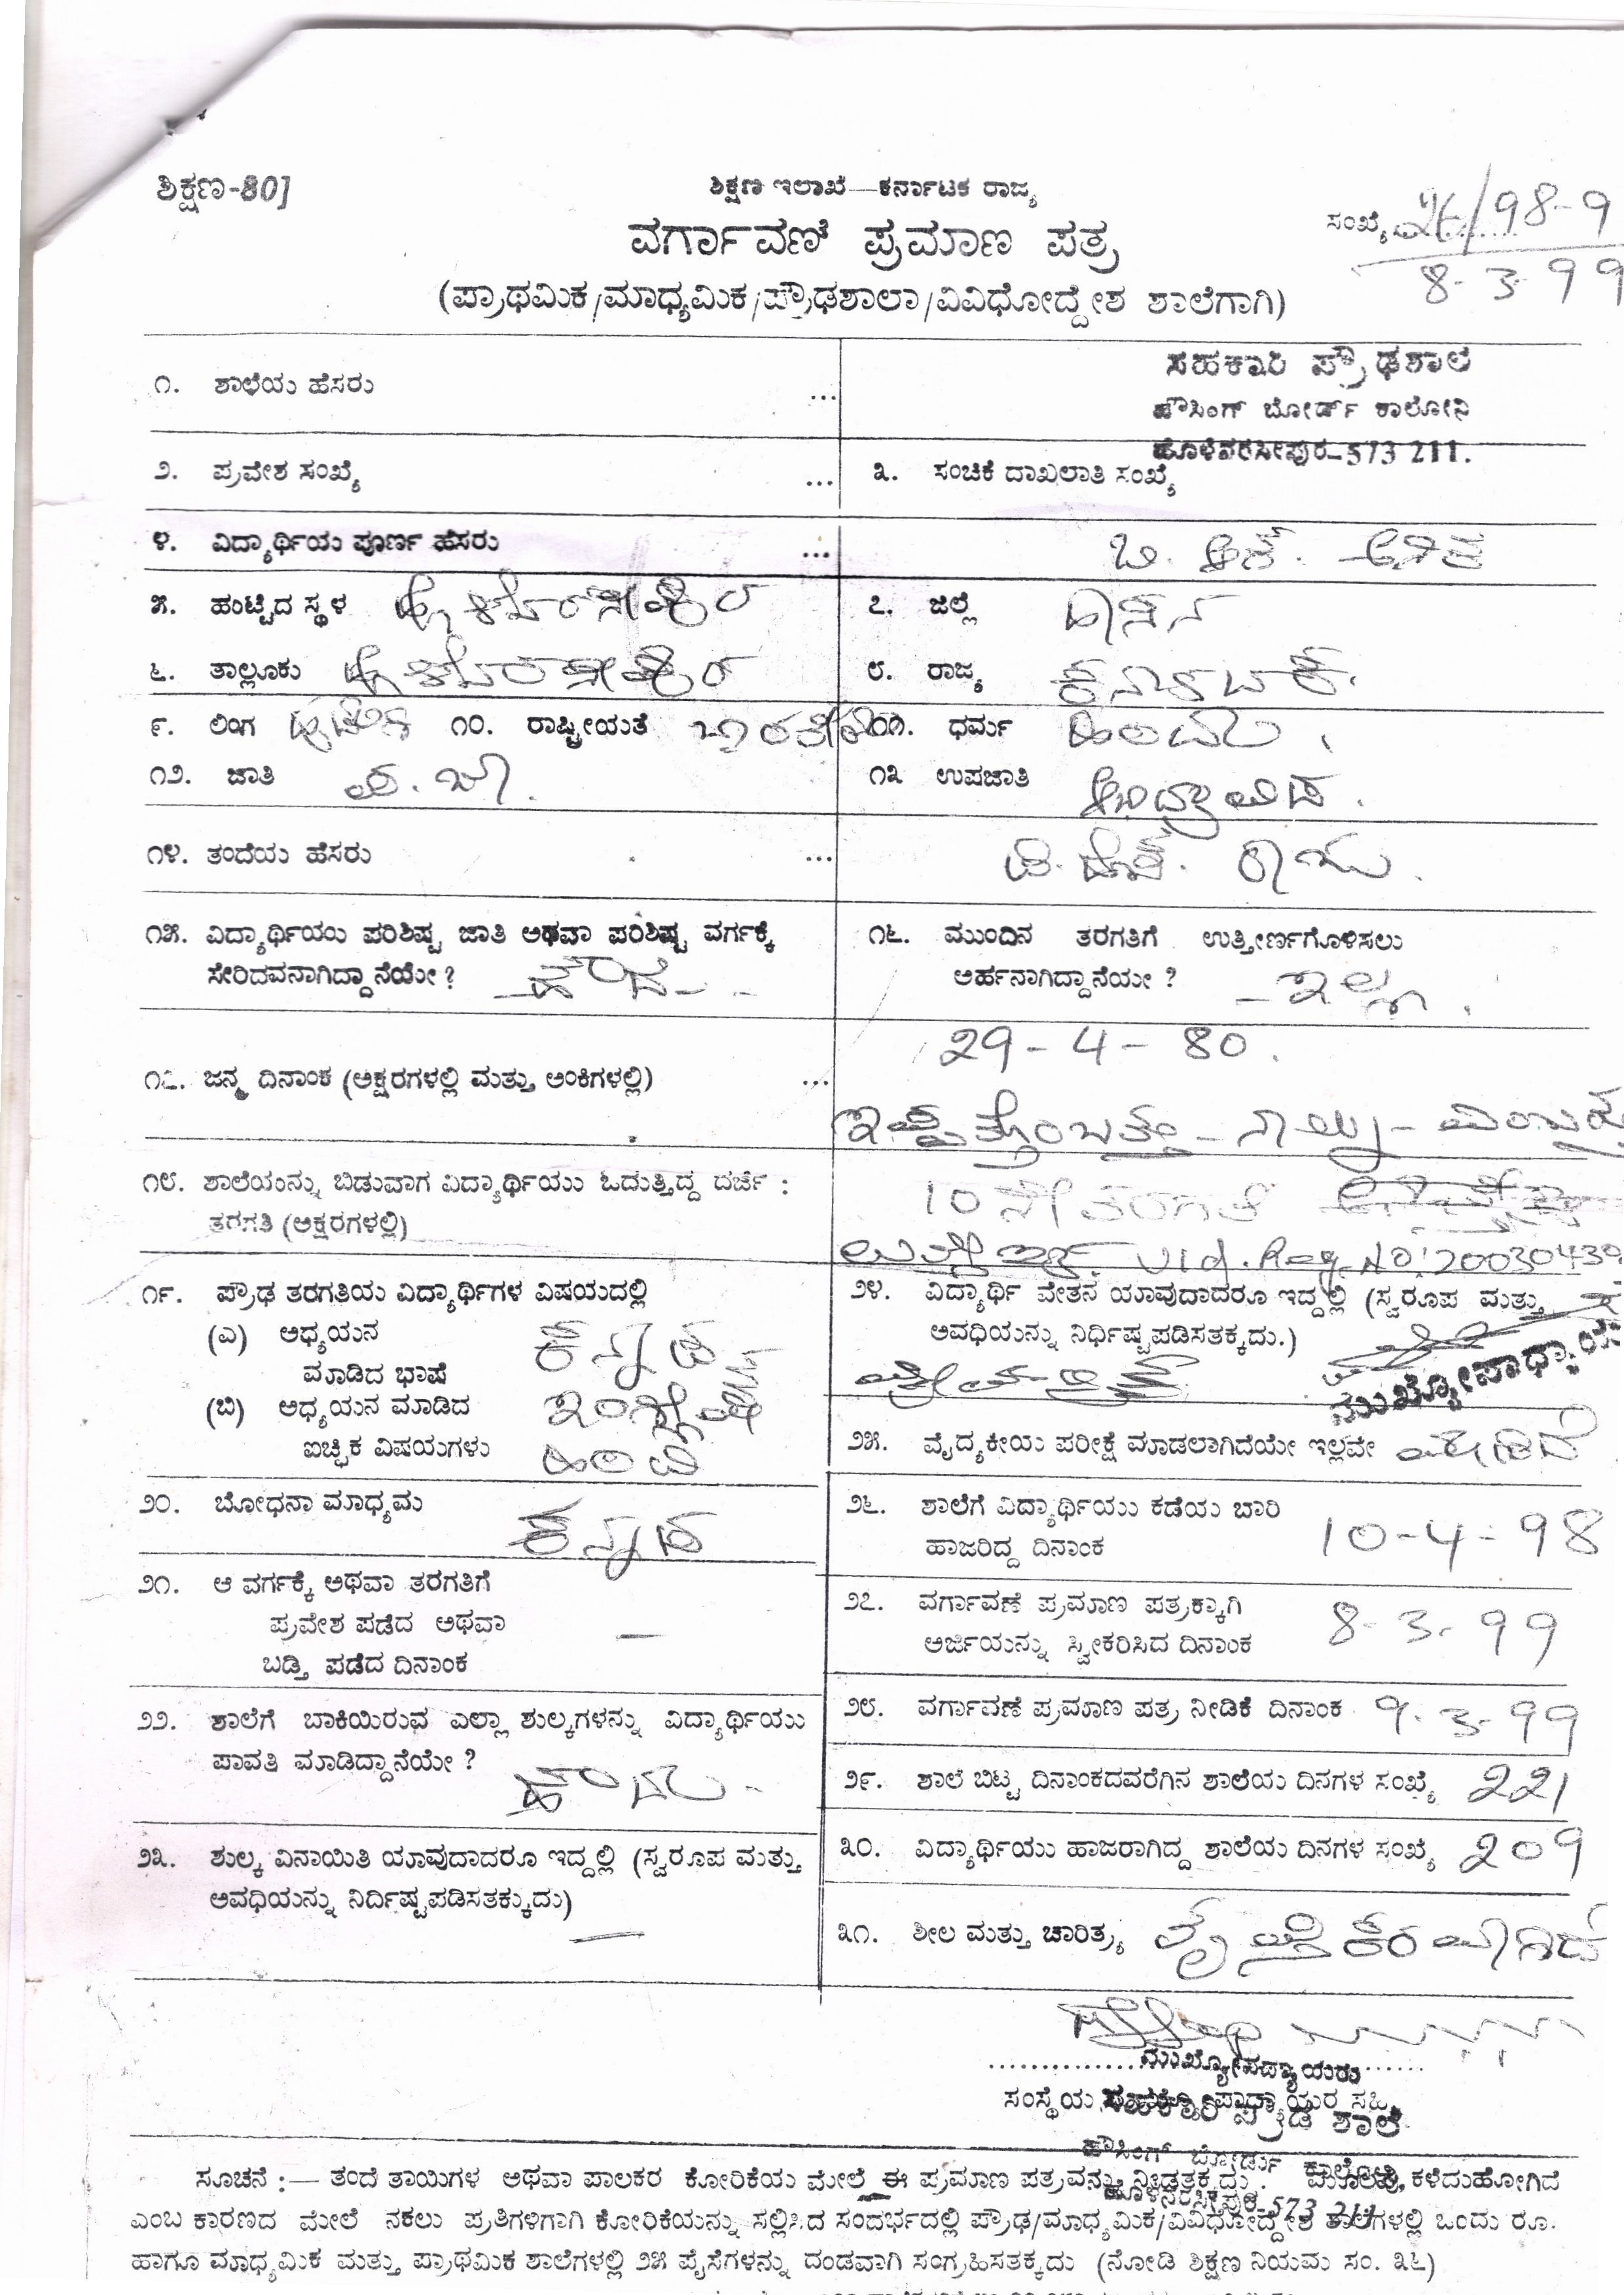 ಶಿಕ್ಷಣ-80]
ಶಿಕ್ಷಣ ಇಲಾಖೆ—ಕರ್ನಾಟಕ ರಾಜ್ಯ
ವರ್ಗಾವಣೆ ಪ್ರಮಾಣ ಪತ್ರ
ಸಂಖ್ಯೆ 26/98-9
8-3-99
(ಪ್ರಾಥಮಿಕ/ಮಾಧ್ಯಮಿಕ/ಪ್ರೌಢಶಾಲಾ/ವಿವಿಧೋದ್ದೇಶ ಶಾಲೆಗಾಗಿ)
೧. ಶಾಲೆಯ ಹೆಸರು ...
ಸಹಕಾರಿ ಪ್ರೌಢಶಾಲೆ
ಹೌಸಿಂಗ್ ಬೋರ್ಡ್ ಕಾಲೋನಿ
ಹೊಳೆನರಸೀಪುರ-573 211.
೨. ಪ್ರವೇಶ ಸಂಖ್ಯೆ ... ೩. ಸಂಚಿಕೆ ದಾಖಲಾತಿ ಸಂಖ್ಯೆ
೪. ವಿದ್ಯಾರ್ಥಿಯ ಪೂರ್ಣ ಹೆಸರು ...
೫. ಹುಟ್ಟಿದ ಸ್ಥಳ ಹೊಳೆನರಸೀಪುರ ೭. ಜಿಲ್ಲೆ ಹಾಸನ
೬. ತಾಲ್ಲೂಕು ಹೊಳೆನರಸೀಪುರ ೮. ರಾಜ್ಯ ಕರ್ನಾಟಕ.
೯. ಲಿಂಗ ೧೦. ರಾಷ್ಟ್ರೀಯತೆ ಭಾರತೀಯ ೧೧. ಧರ್ಮ ಹಿಂದು.
೧೨. ಜಾತಿ ಪ.ಜಾ. ೧೩ ಉಪಜಾತಿ ಆದಿದ್ರಾವಿಡ.
೧೪. ತಂದೆಯ ಹೆಸರು ...
೧೫. ವಿದ್ಯಾರ್ಥಿಯು ಪರಿಶಿಷ್ಟ ಜಾತಿ ಅಥವಾ ಪರಿಶಿಷ್ಟ ವರ್ಗಕ್ಕೆ
ಸೇರಿದವನಾಗಿದ್ದಾನೆಯೇ? ಹೌದು
೧೬. ಮುಂದಿನ ತರಗತಿಗೆ ಉತ್ತೀರ್ಣಗೊಳಿಸಲು
ಅರ್ಹನಾಗಿದ್ದಾನೆಯೇ? ಇಲ್ಲ.
29-4-80.
೧೭. ಜನ್ಮ ದಿನಾಂಕ (ಅಕ್ಷರಗಳಲ್ಲಿ ಮತ್ತು ಅಂಕಿಗಳಲ್ಲಿ) ...
ಇಪ್ಪತ್ತೊಂಬತ್ತು - ನಾಲ್ಕು - ಎಂಬತ್ತು
೧೮. ಶಾಲೆಯನ್ನು ಬಿಡುವಾಗ ವಿದ್ಯಾರ್ಥಿಯು ಓದುತ್ತಿದ್ದ ದರ್ಜೆ :
ತರಗತಿ (ಅಕ್ಷರಗಳಲ್ಲಿ)
10 ನೇ ತರಗತಿ
Vid. Reg. No: 20030439
೧೯. ಪ್ರೌಢ ತರಗತಿಯ ವಿದ್ಯಾರ್ಥಿಗಳ ವಿಷಯದಲ್ಲಿ
(ಎ) ಅಧ್ಯಯನ
ಮಾಡಿದ ಭಾಷೆ ಕನ್ನಡ
(ಬಿ) ಅಧ್ಯಯನ ಮಾಡಿದ ಇಂಗ್ಲೀಷ್
ಐಚ್ಛಿಕ ವಿಷಯಗಳು ಹಿಂದಿ
೨೦. ಬೋಧನಾ ಮಾಧ್ಯಮ ಕನ್ನಡ
೨೧. ಆ ವರ್ಗಕ್ಕೆ ಅಥವಾ ತರಗತಿಗೆ
ಪ್ರವೇಶ ಪಡೆದ ಅಥವಾ —
ಬಡ್ತಿ ಪಡೆದ ದಿನಾಂಕ
೨೨. ಶಾಲೆಗೆ ಬಾಕಿಯಿರುವ ಎಲ್ಲಾ ಶುಲ್ಕಗಳನ್ನು ವಿದ್ಯಾರ್ಥಿಯು
ಪಾವತಿ ಮಾಡಿದ್ದಾನೆಯೇ? ಹೌದು
೨೩. ಶುಲ್ಕ ವಿನಾಯಿತಿ ಯಾವುದಾದರೂ ಇದ್ದಲ್ಲಿ (ಸ್ವರೂಪ ಮತ್ತು
ಅವಧಿಯನ್ನು ನಿರ್ದಿಷ್ಟಪಡಿಸತಕ್ಕುದು) —
೨೪. ವಿದ್ಯಾರ್ಥಿ ವೇತನ ಯಾವುದಾದರೂ ಇದ್ದಲ್ಲಿ (ಸ್ವರೂಪ ಮತ್ತು
ಅವಧಿಯನ್ನು ನಿರ್ಧಿಷ್ಟಪಡಿಸತಕ್ಕದು.)
ಮುಖ್ಯೋಪಾಧ್ಯಾಯ
೨೫. ವೈದ್ಯಕೀಯ ಪರೀಕ್ಷೆ ಮಾಡಲಾಗಿದೆಯೇ ಇಲ್ಲವೇ
೨೬. ಶಾಲೆಗೆ ವಿದ್ಯಾರ್ಥಿಯು ಕಡೆಯ ಬಾರಿ
ಹಾಜರಿದ್ದ ದಿನಾಂಕ 10-4-98
೨೭. ವರ್ಗಾವಣೆ ಪ್ರಮಾಣ ಪತ್ರಕ್ಕಾಗಿ
ಅರ್ಜಿಯನ್ನು ಸ್ವೀಕರಿಸಿದ ದಿನಾಂಕ 8-3-99
೨೮. ವರ್ಗಾವಣೆ ಪ್ರಮಾಣ ಪತ್ರ ನೀಡಿಕೆ ದಿನಾಂಕ 9-3-99
೨೯. ಶಾಲೆ ಬಿಟ್ಟ ದಿನಾಂಕದವರೆಗಿನ ಶಾಲೆಯ ದಿನಗಳ ಸಂಖ್ಯೆ 221
೩೦. ವಿದ್ಯಾರ್ಥಿಯು ಹಾಜರಾಗಿದ್ದ ಶಾಲೆಯ ದಿನಗಳ ಸಂಖ್ಯೆ 209
೩೧. ಶೀಲ ಮತ್ತು ಚಾರಿತ್ರ್ಯ ತೃಪ್ತಿಕರವಾಗಿದೆ
ಮುಖ್ಯೋಪಧ್ಯಾಯರು
ಸಂಸ್ಥೆಯ ಮುಖ್ಯೋಪಾಧ್ಯಾಯರ ಸಹಿ
ಸಹಕಾರಿ ಪ್ರೌಢ ಶಾಲೆ
ಹೌಸಿಂಗ್ ಬೋರ್ಡು ಕಾಲೋನಿ,
ಹೊಳೆನರಸೀಪುರ-573 211
ಸೂಚನೆ :— ತಂದೆ ತಾಯಿಗಳ ಅಥವಾ ಪಾಲಕರ ಕೋರಿಕೆಯ ಮೇಲೆ ಈ ಪ್ರಮಾಣ ಪತ್ರವನ್ನು ನೀಡತಕ್ಕದ್ದು. ಮೂಲವು ಕಳೆದುಹೋಗಿದೆ
ಎಂಬ ಕಾರಣದ ಮೇಲೆ ನಕಲು ಪ್ರತಿಗಳಿಗಾಗಿ ಕೋರಿಕೆಯನ್ನು ಸಲ್ಲಿಸಿದ ಸಂದರ್ಭದಲ್ಲಿ ಪ್ರೌಢ/ಮಾಧ್ಯಮಿಕ/ವಿವಿಧೋದ್ದೇಶ ಶಾಲೆಗಳಲ್ಲಿ ಒಂದು ರೂ.
ಹಾಗೂ ಮಾಧ್ಯಮಿಕ ಮತ್ತು ಪ್ರಾಥಮಿಕ ಶಾಲೆಗಳಲ್ಲಿ ೨೫ ಪೈಸೆಗಳನ್ನು ದಂಡವಾಗಿ ಸಂಗ್ರಹಿಸತಕ್ಕದು (ನೋಡಿ ಶಿಕ್ಷಣ ನಿಯಮ ಸಂ. ೩೬)